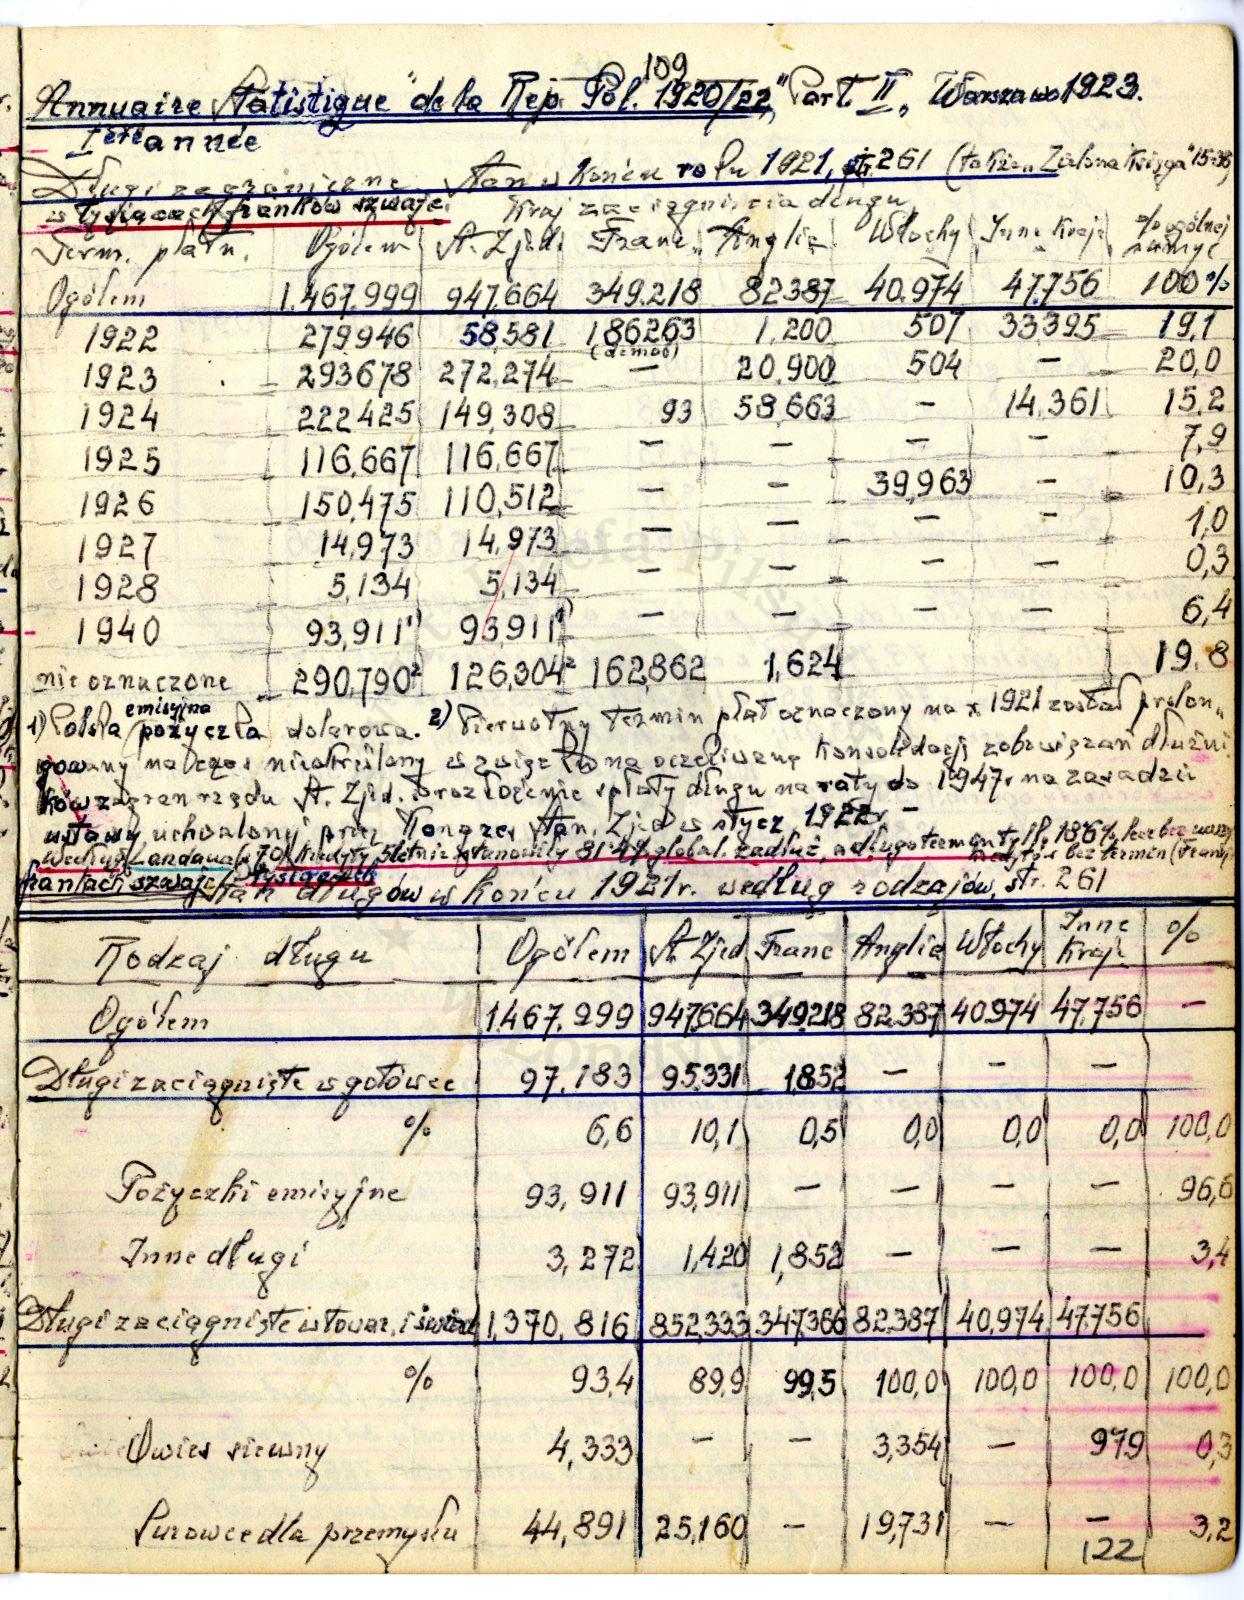 109
Annuaire Statistique "de la Rep. Pol. 1920/22," Part. II, Warszawa 1923.
I ère année
Długi zagraniczne. Stan w końcu roku 1921, str. 261 (także "Zielona Księga"
w tysiącach franków szwajc. Kraj zaciągnięcia długu
Term. płatn. Ogółem St. Zjed. Franc. Anglia Włochy Inne kraje % ogólnej sumy
Ogółem 1.467.999 947.664 349.218 82387 40.974 47.756 100%
1922 279946 58,581 186263 1,200 507 33395 19,1
(demob)
1923 293678 272,274 — 20,900 504 — 20,0
1924 222425 149,308 93 58,663 — 14,361 15,2
1925 116,667 116,667 — — — — 7,9
1926 150,475 110,512 — — 39,963 — 10,3
1927 14,973 14,973 — — — — 1,0
1928 5,134 5,134 — — — — 0,3
1940 93,911¹) 93,911¹) — — — — 6,4
nieoznaczone 290,790² 126,304² 162,862 1,624 19,8
1) Polska emisyjna pożyczka dolarowa. 2) Pierwotny termin płat oznaczony na x 1921 został prolon-
gowany na czas nieokreślony w związku na oczekiwaną konsolidację zobowiązań dłużni
ków zagran rządu St. Zjed. i rozłożenie spłaty długu na raty do 1947 r na zasadzie
ustawy uchwalonej przez Kongres Stan. Zjed w stycz 1922 r. —
Według Landaua s. 70 kredyty 5letnie stanowiły 81,4% global. zadłuż, a długotermenty 18,6%
frankach szwajc. tysiącach Stan długów w końcu 1921 r. według rodzajów, str. 261
Rodzaj długu Ogółem St. Zjed Franc Anglia Włochy Inne Kraje %
Ogółem 1467.999 947,664 349,218 82.387 40.974 47.756 —
Długi zaciągnięte w gotówce 97.183 95.331 1,852 — — —
% 6,6 10,1 0,5 0,0 0,0 0,0 100,0
Pożyczki emisyjne 93,911 93,911 — — — — 96,6
Inne długi 3,272 1,420 1,852 — — — 3,4
Długi zaciągnięte w towar. i świad 1,370,816 852,333 347,366 82387 40,974 47.756
% 93,4 89,9 99,5 100,0 100,0 100,0 100,0
Owies siewny 4,333 — — 3,354 — 979 0,3
Surowce dla przemysłu 44,891 25,160 — 19,731 — — 3,2
122